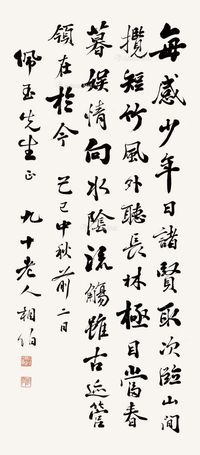 每感少年日諸賢取次臨山間
攬短竹風外聽長林極目當春
暮娛情向水陰流觴雖古迹管
領在於今 己巳中秋前二日
佩玉先生正
九十老人相伯